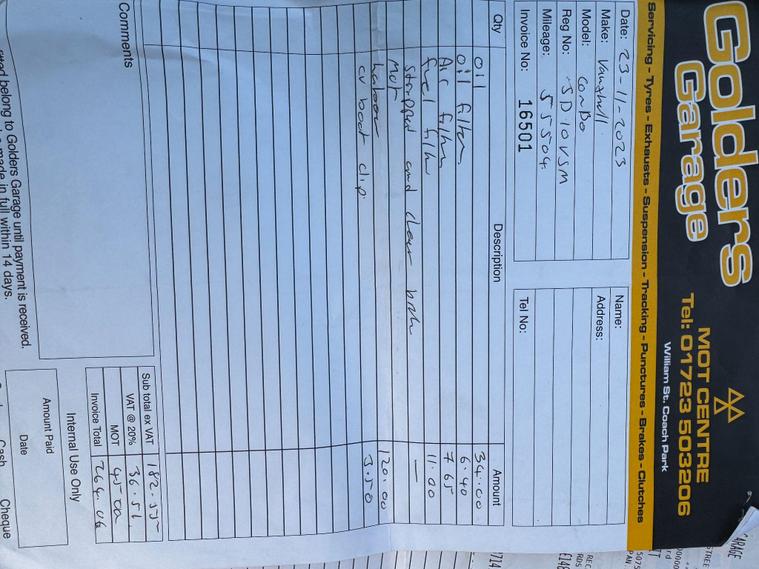 Golders
Garage
MOT CENTRE
Tel: 01723 503206
William St. Coach Park
Servicing - Tyres - Exhausts - Suspension - Tracking - Punctures - Brakes - Clutches
Date: 23-11-2023
Make: Vauxhall
Model: Combo
Reg No: SD10VSM
Mileage: 55504
Invoice No: 16501
Name:
Address:
Tel No:
Qty Description Amount
oil 34.00
oil filter 6.40
Air filter 7.65
fuel filter 11.00
stripped and clean —
MOT
Labour 120.00
cv boot clip 3.50
Comments
Sub total ex VAT 182.55
VAT @ 20% 36.51
MOT 45.00
Invoice Total 264.06
Internal Use Only
Amount Paid
Date
Cheque
Cash
belong to Golders Garage until payment is received.
made in full within 14 days.